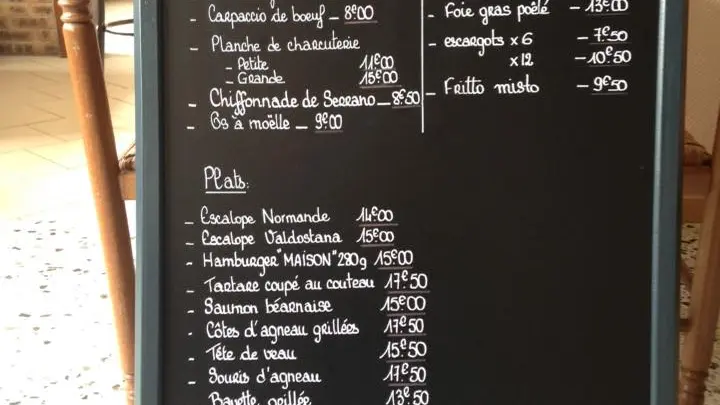 - Carpaccio de boeuf - 8€00
- Planche de charcuterie
- Petite 11€00
- Grande 15€00
- Chiffonnade de Serrano - 8€50
- Os à moëlle - 9€00
- Foie gras poêlé - 13€00
- escargots x 6 - 7€50
x12 - 10€50
- Fritto misto - 9€50
Plats:
- Escalope Normande 14€00
- Escalope Valdostana 15€00
- Hamburger "MAISON" 280g 15€00
- Tartare coupé au couteau 17€50
- Saumon béarnaise 15€00
- Côtes d'agneau grillées 17€50
- Tête de veau 15€50
- Souris d'agneau 17€50
Bavette grillée 13€50